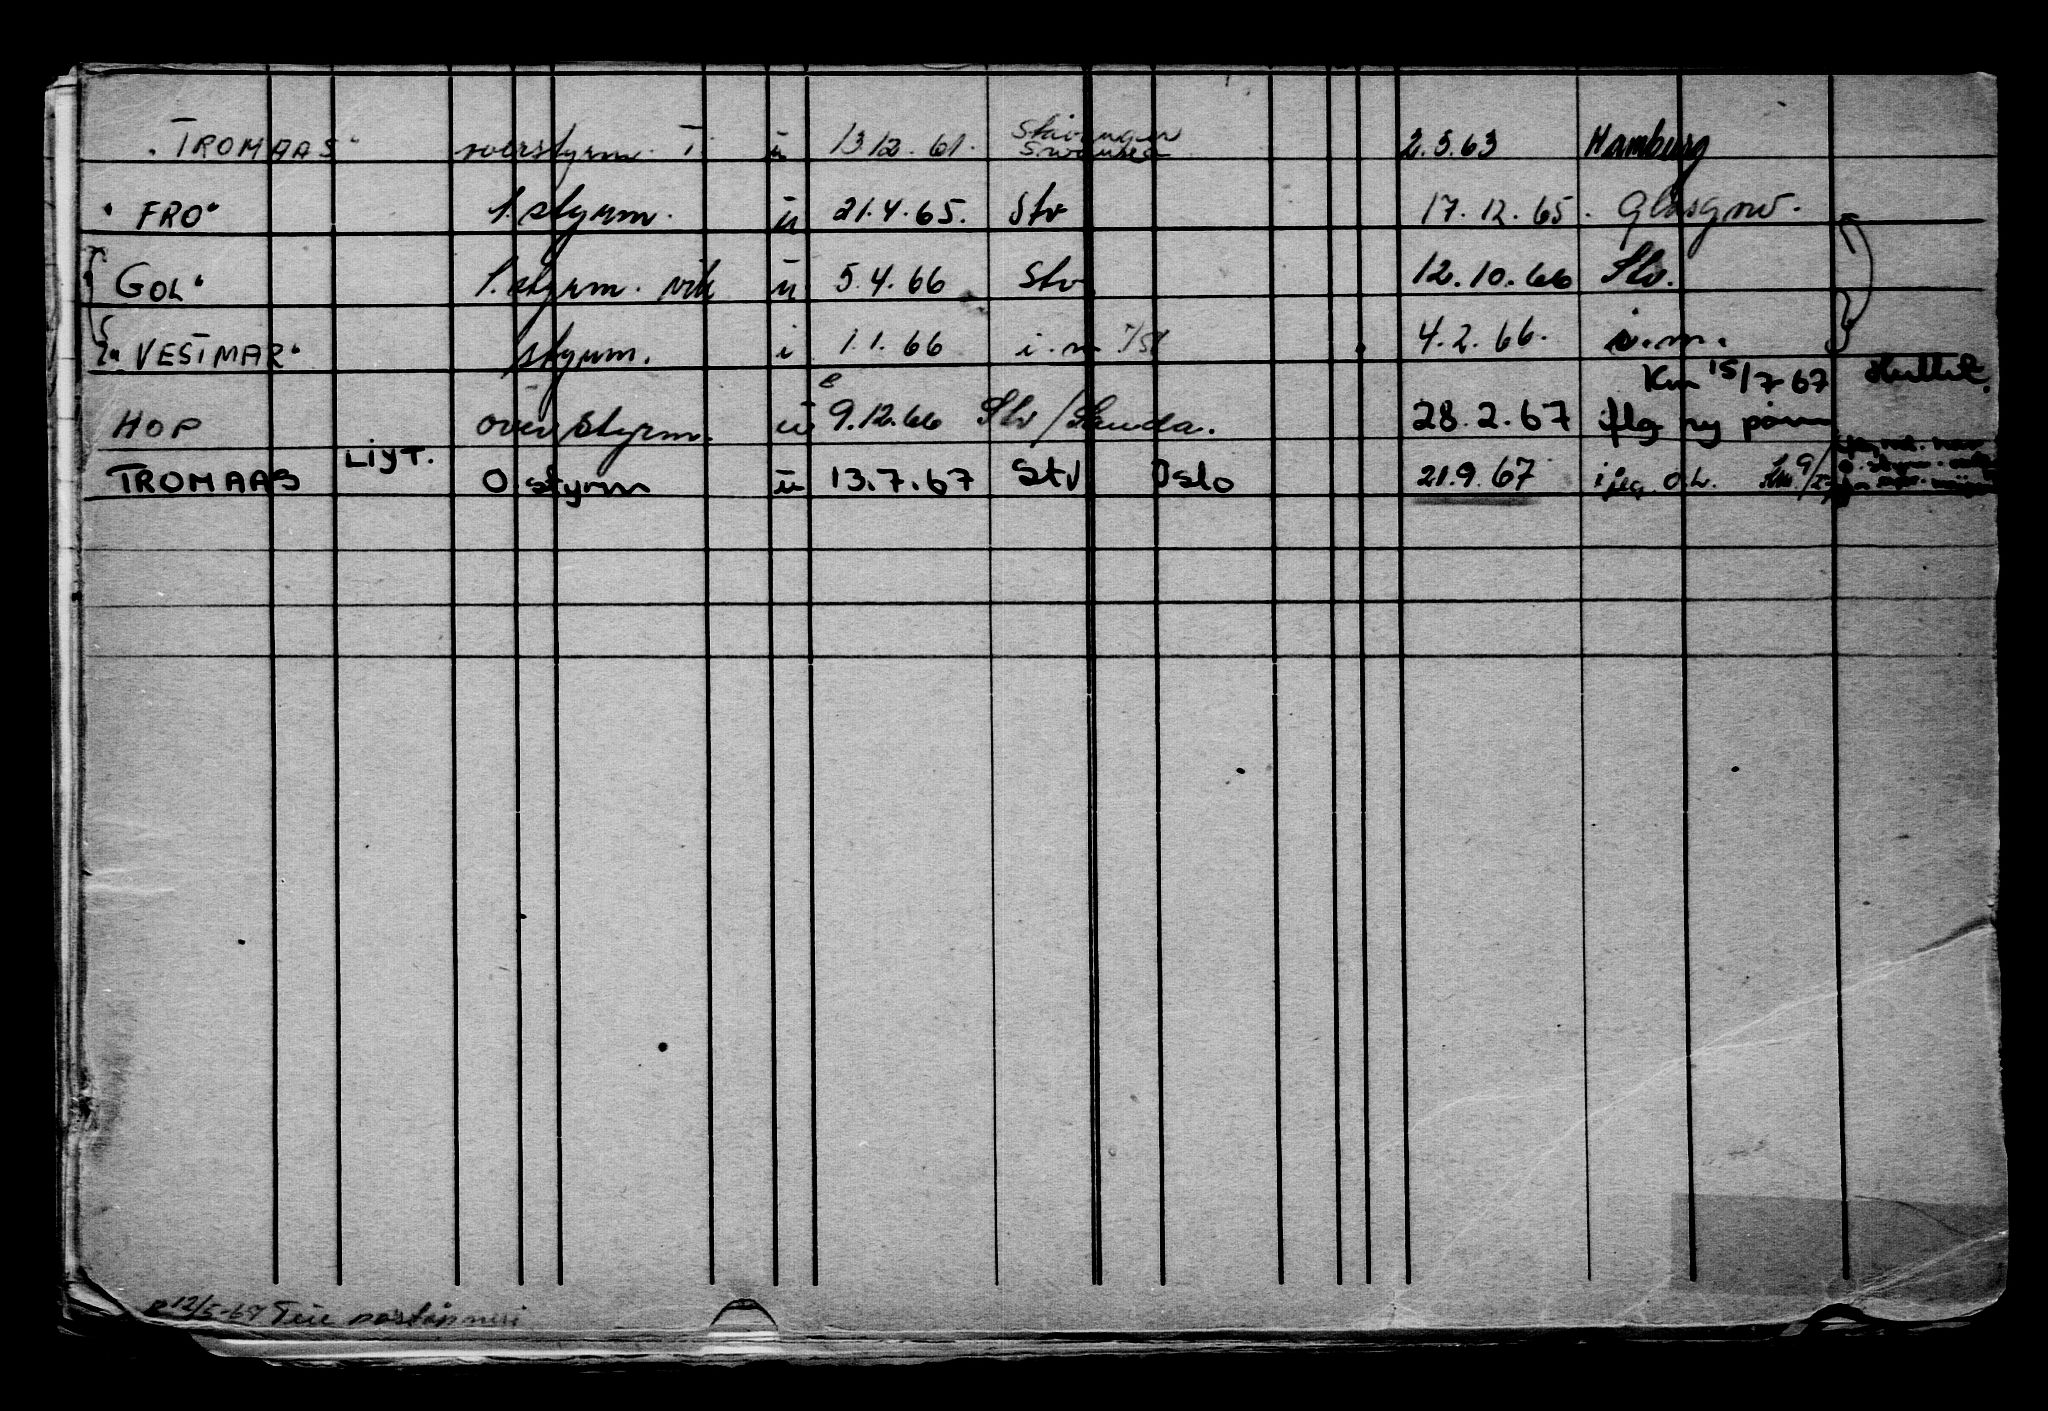 "TROMAAS" overstyrm. T. u 13.12.61. Stavanger
Swansea 2.5.63 Hamburg
"FRO" 1. styrm. u 21.4.65. Stv 17.12.65. Glasgow.
GOL" 1. styrm. vik u 5.4.66 Stv. 12.10.66 Stv.
"VESTMAR" styrm. i 1.1.66 i.m. 4.2.66. i.m.
Km 15/7-67
HOP overstyrm. u 9.12.66 Stv/Sauda. 28.2.67 flg ny
TROMAAS Liyt. O styrm u 13.7.67 Stv Oslo 21.9.67
12/5-67 Teie